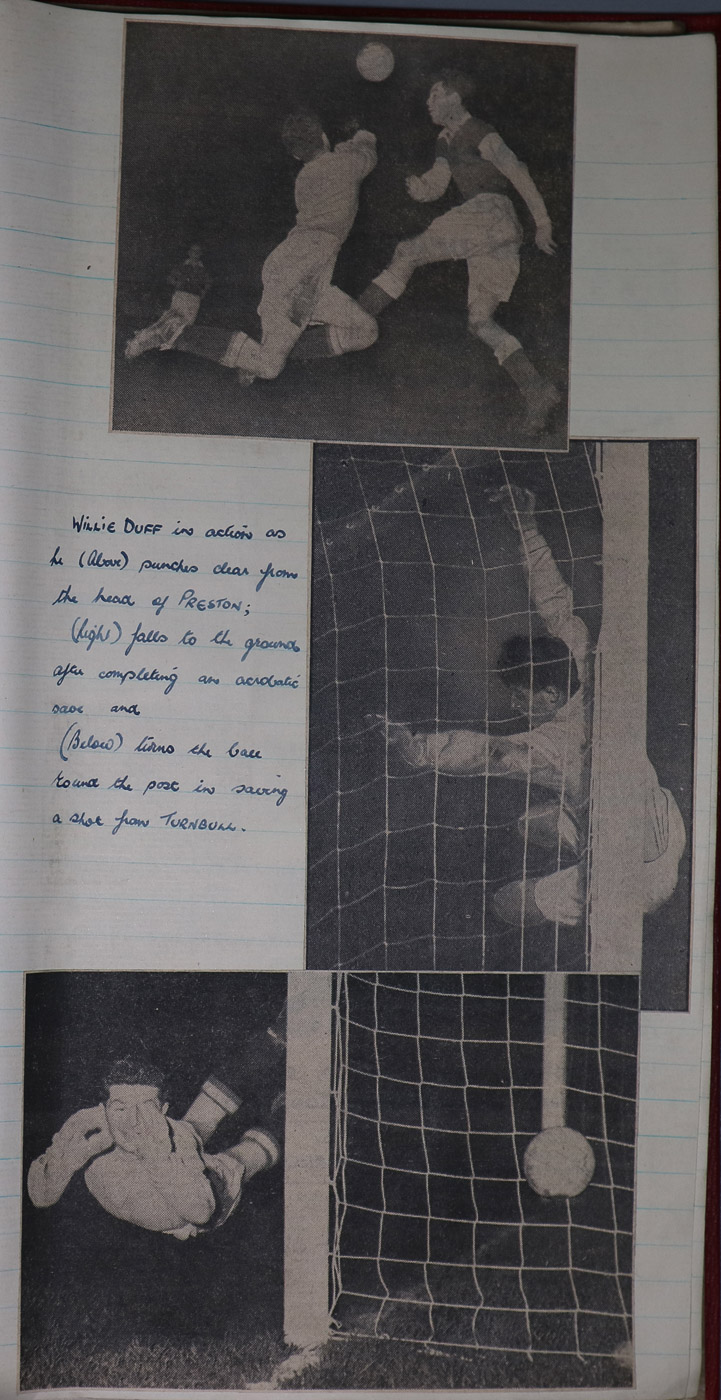 WILLIE DUFF in action as
he (Above) punches clear from
the head of PRESTON;
(Right) falls to the ground
after completing an acrobatic
save and
(Below) turns the ball
round the post in saving
a shot from TURNBULL.